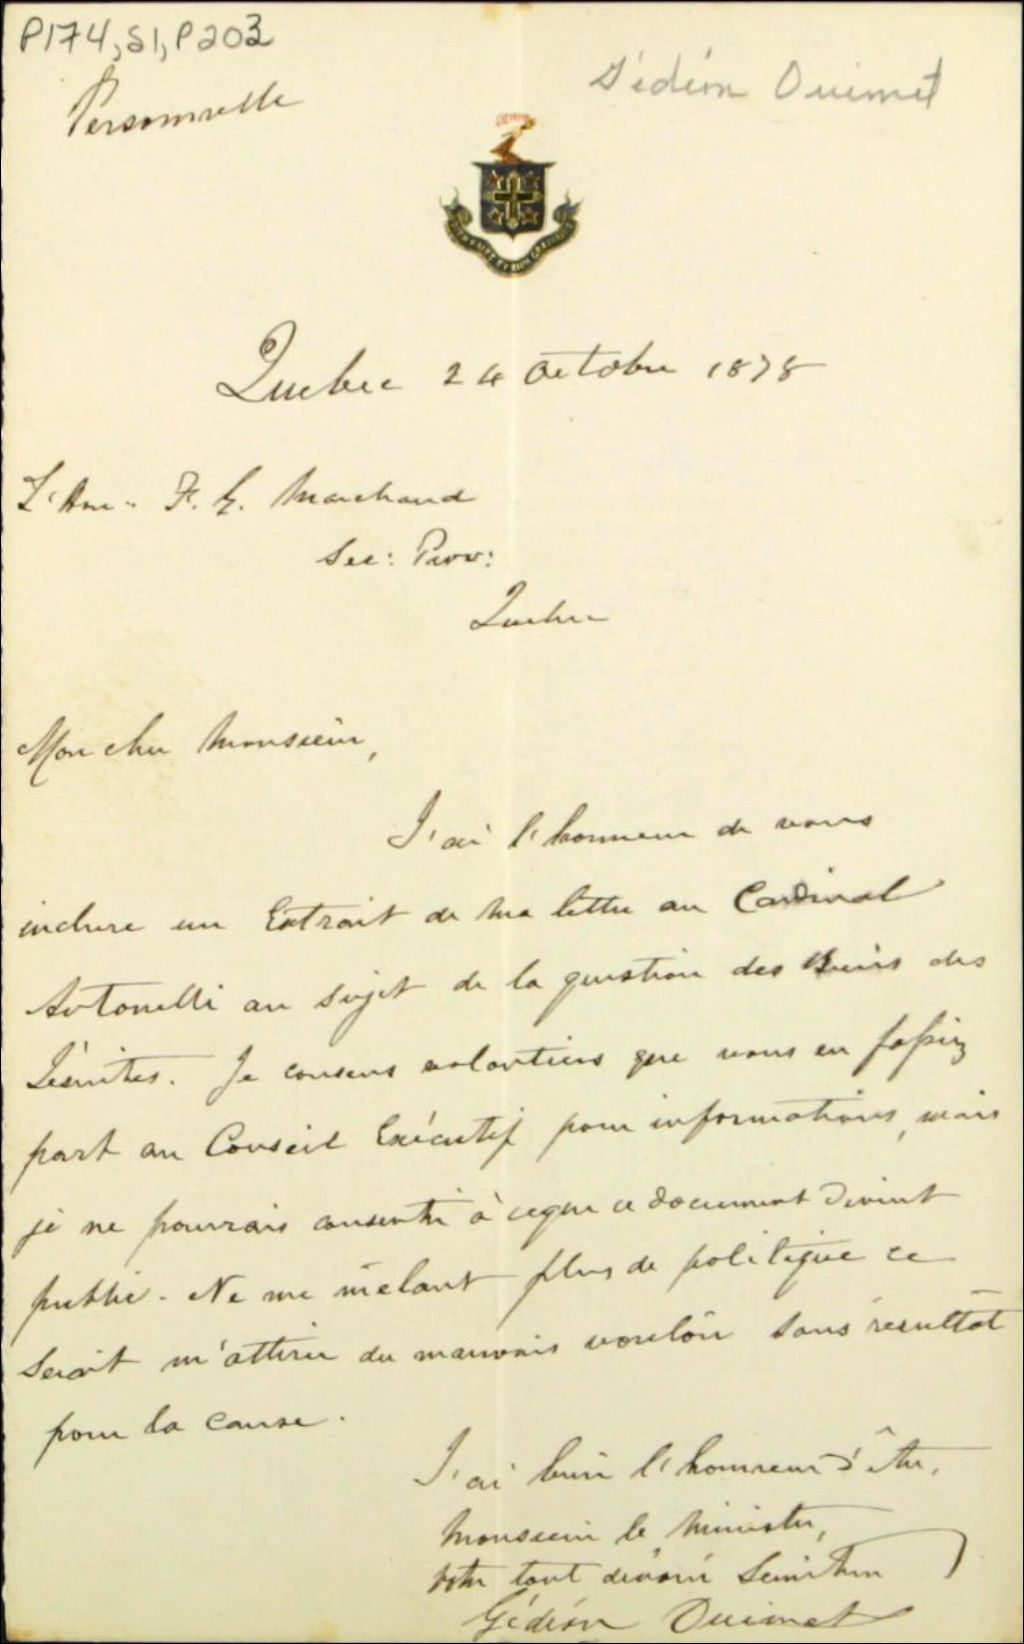 P174,S1,P203
Gédéon Ouimet
Personnelle
Quebec 24 Octobre 1878
L'Hon. F. G. Marchand
Sec: Prov:
Quebec
Mon cher Monsieur,
J'ai l'honneur de vous
inclure un Extrait de ma lettre au Cardinal
Antonelli au sujet de la question des Biens des
Jésuites. Je consens volontiers que vous en fassiez
part au Conseil Exécutif pour informations, mais
je ne pourrais consentir à ceque ce document devint
public. Ne me mêlant plus de politique ce
serait m'attirer du mauvais vouloir sans résultat
pour la cause.
J'ai bien l'honneur d'être,
Monsieur le Ministre,
Votre tout dévoué Serviteur
Gédéon Ouimet